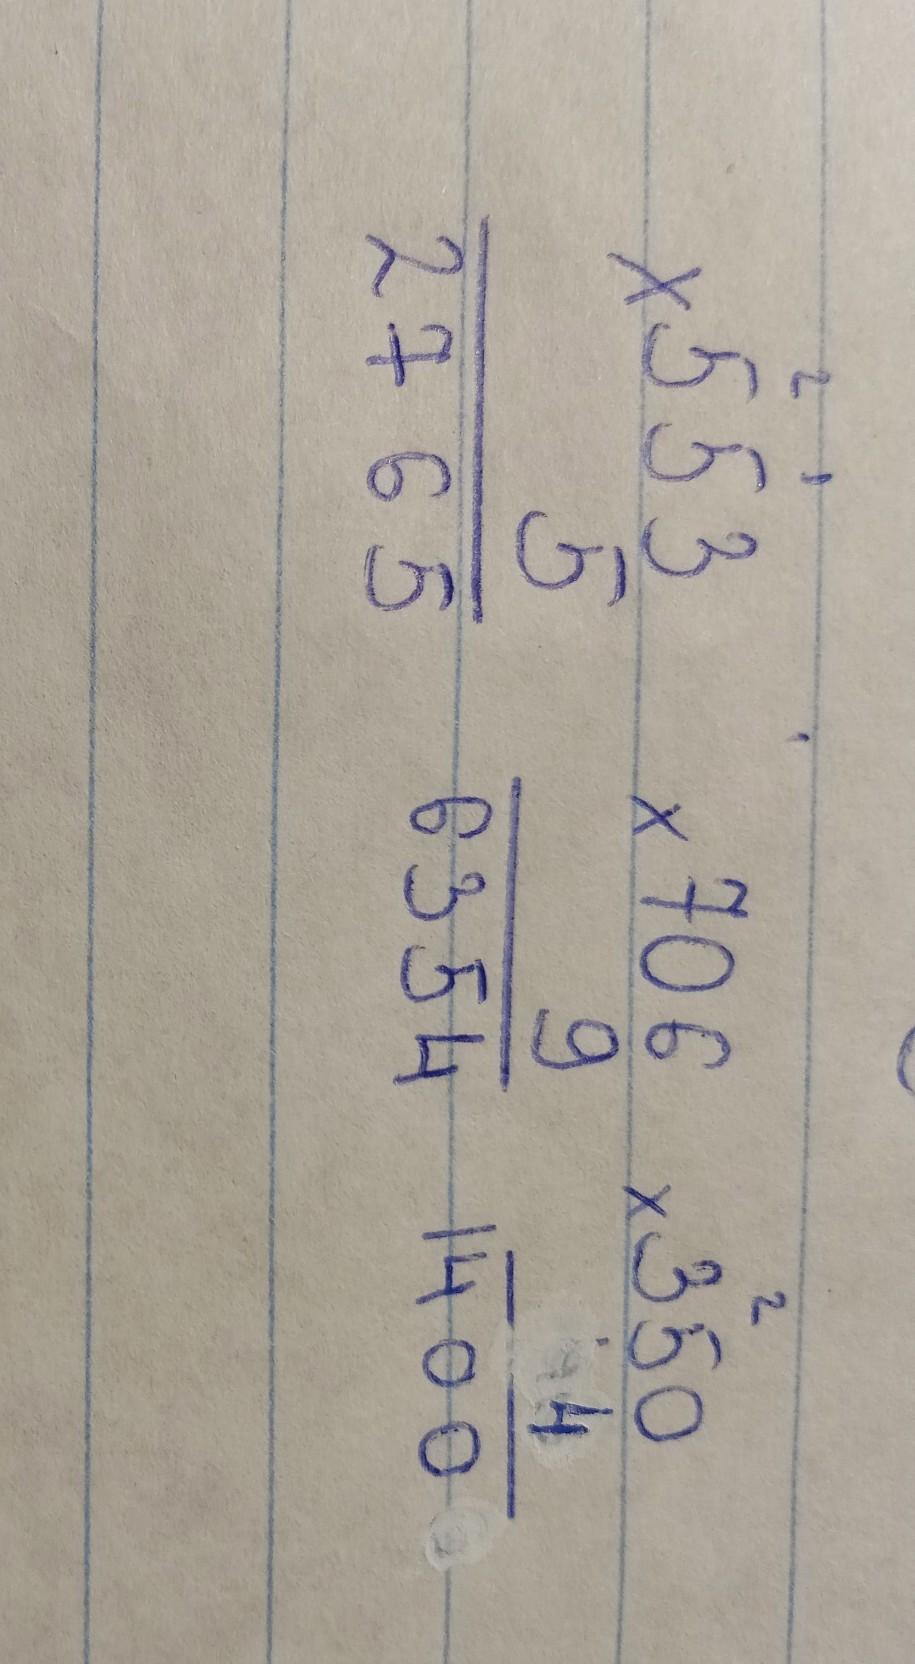 2 1 2
x553 x706 x350
5 9 4
2765 6354 1400